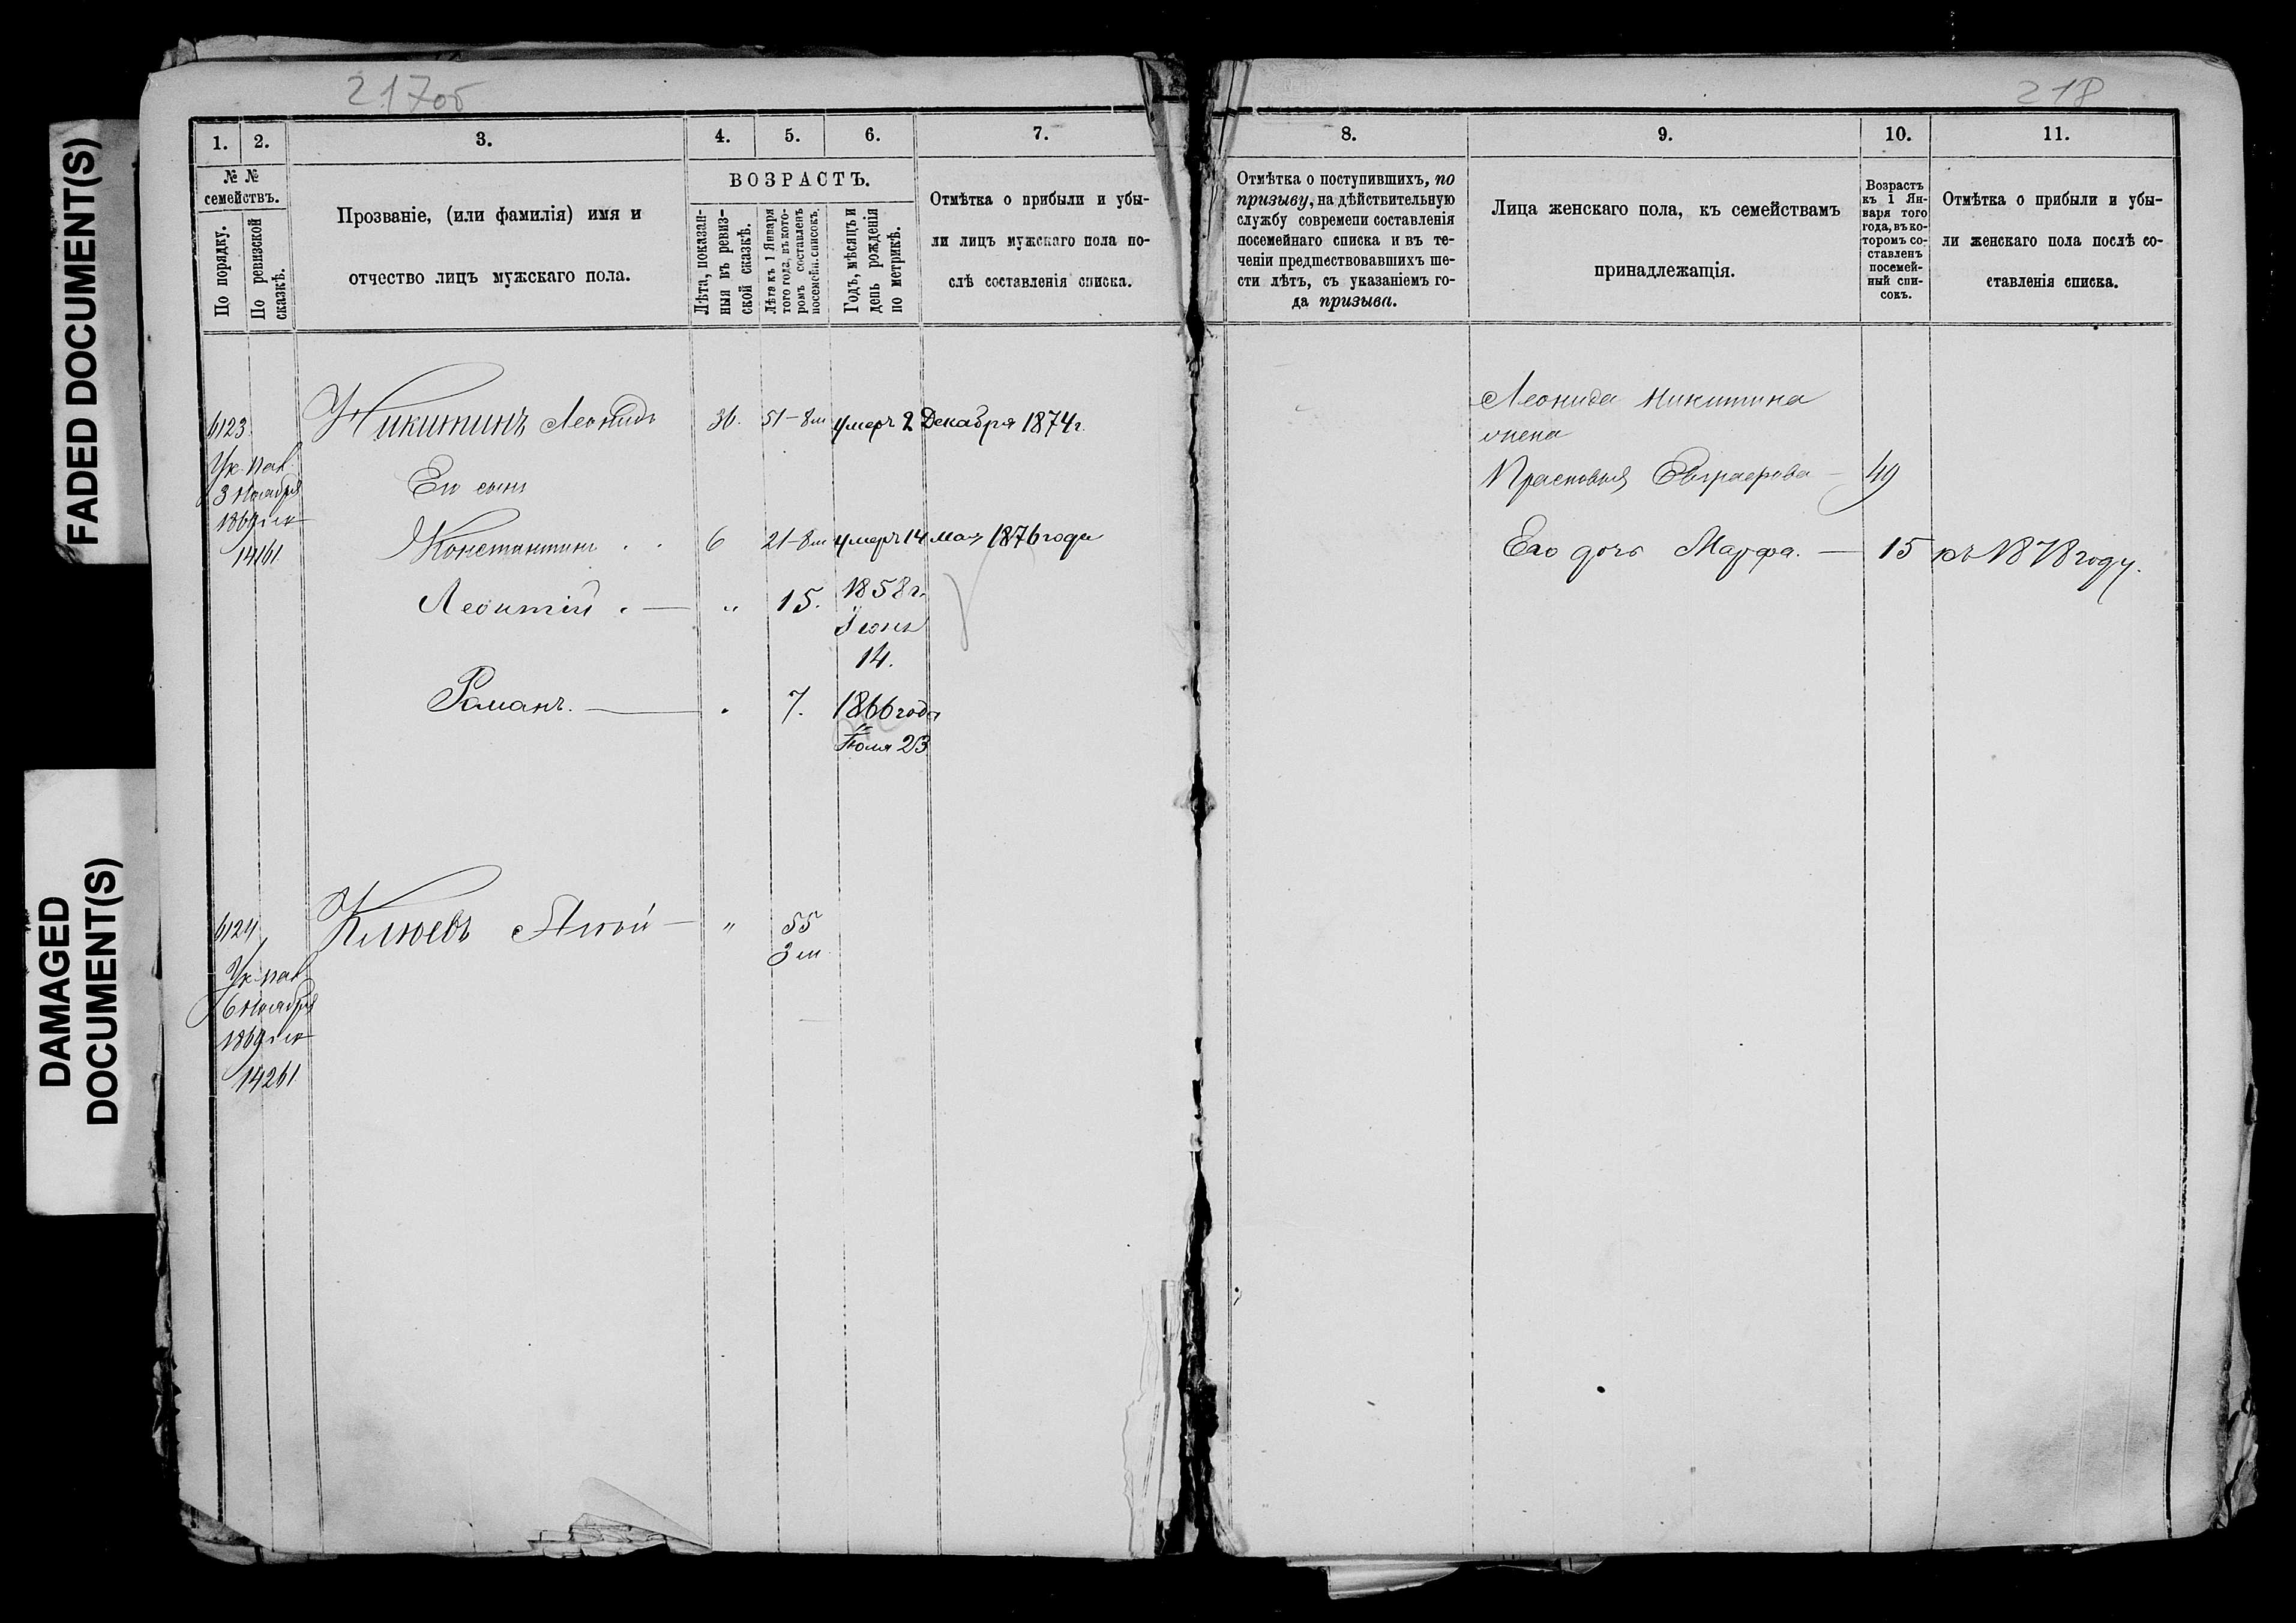 FADED DOCUMENT(S)
DAMAGED
DOCUMENT(S)
217об
1.
2.
3.
4.
5.
6.
7.
№ №
семействъ.
По порядку.
По ревизской
сказкѣ.
Прозваніе, (или фамилія) имя и
отчество лицъ мужскаго пола.
ВОЗРАСТЪ.
Лѣта, показан-
ныя въ ревиз-
ской сказкѣ.
Лѣта къ 1 Января
того года, въ кото-
ромъ составленъ
посемейн. списокъ.
Годъ, мѣсяцъ и
день рожденія
по метрикѣ.
Отмѣтка о прибыли и убы-
ли лицъ мужскаго пола по-
слѣ составленія списка.
6123
Ук. пал.
3 Ноября
1869
14161
Никитинъ Леонидъ 36. 51-8м умеръ 2 Декабря 1874г.
Его сынъ
Константинъ . . 6 21-8м умеръ 14 мая 1876 года
Леонтій . — " 15. 1858г.
Іюня
14.
Романъ. — " 7. 1866 года
Іюля 23
6124
Ук. пал.
6 Ноября
1869
14261
Клюевъ — " 55
3 м.
218
8.
9.
10.
11.
Отмѣтка о поступившихъ, по
призыву, на дѣйствительную
службу современи составленія
посемейнаго списка и въ те-
ченіи предшествовавшихъ ше-
сти лѣтъ, съ указаніемъ го-
да призыва.
Лица женскаго пола, къ семействамъ
принадлежащія.
Возрастъ
къ 1 Ян-
варя того
года, въ ко-
торомъ со-
ставленъ
посемей-
ный спи-
сокъ.
Отмѣтка о прибыли и убы-
ли женскаго пола послѣ со-
ставленія списка.
Леонида Никитина
жена
Прасковья Евграфова — 49
Его дочь Марфа. — 15 къ 1878 году.